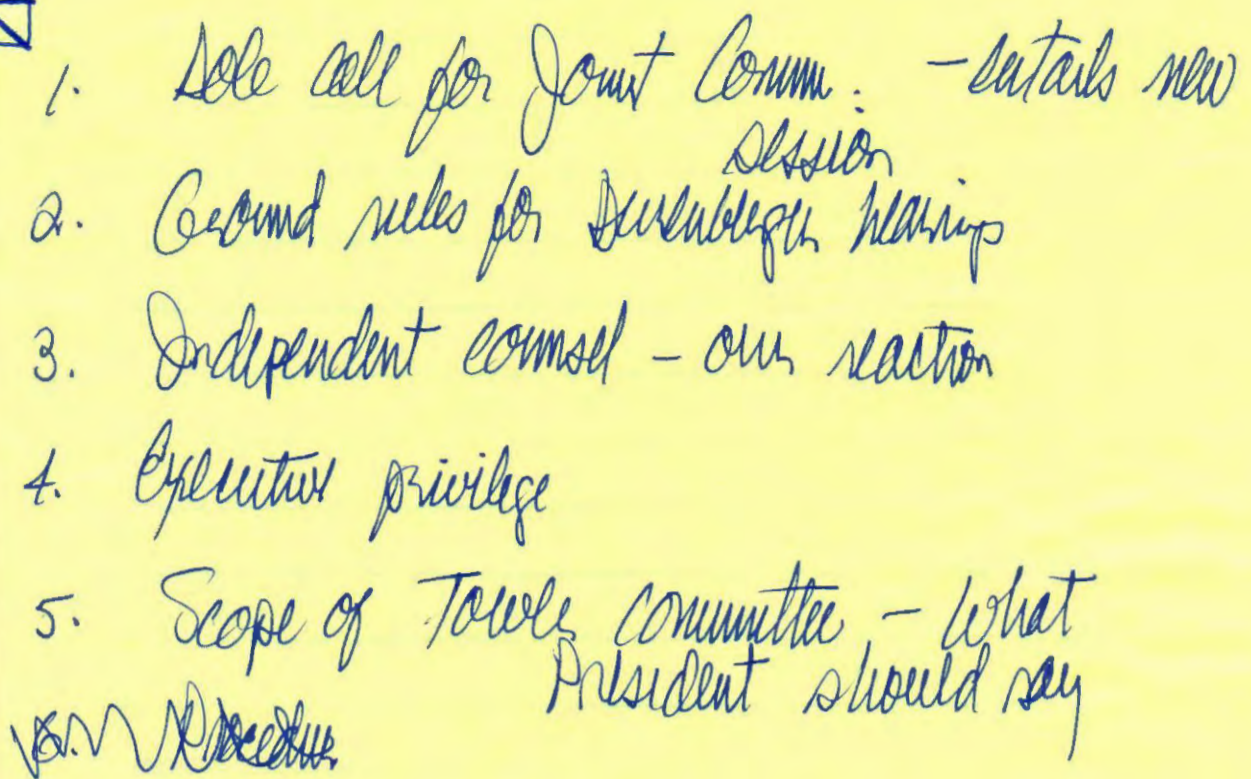 1. Dole call for Joint Comm. - entails new
session
2. Ground rules for Durenberger hearings
3. Independent counsel - our reaction
4. Executive privilege
5. Scope of Tower committee - What
President should say
6. Procedure